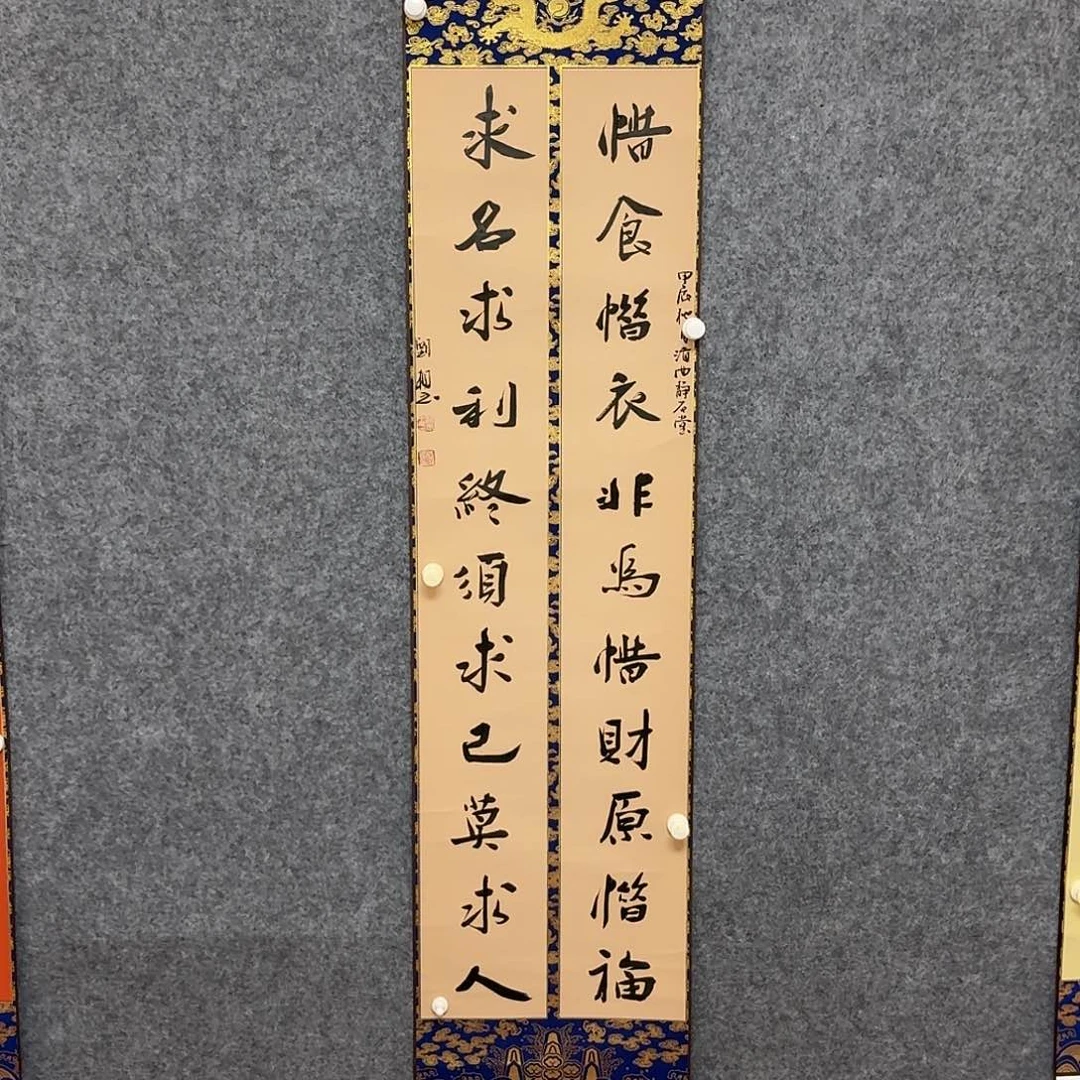 惜食惜衣非為惜財原惜福
甲辰 月 西静石堂
求名求利終須求己莫求人